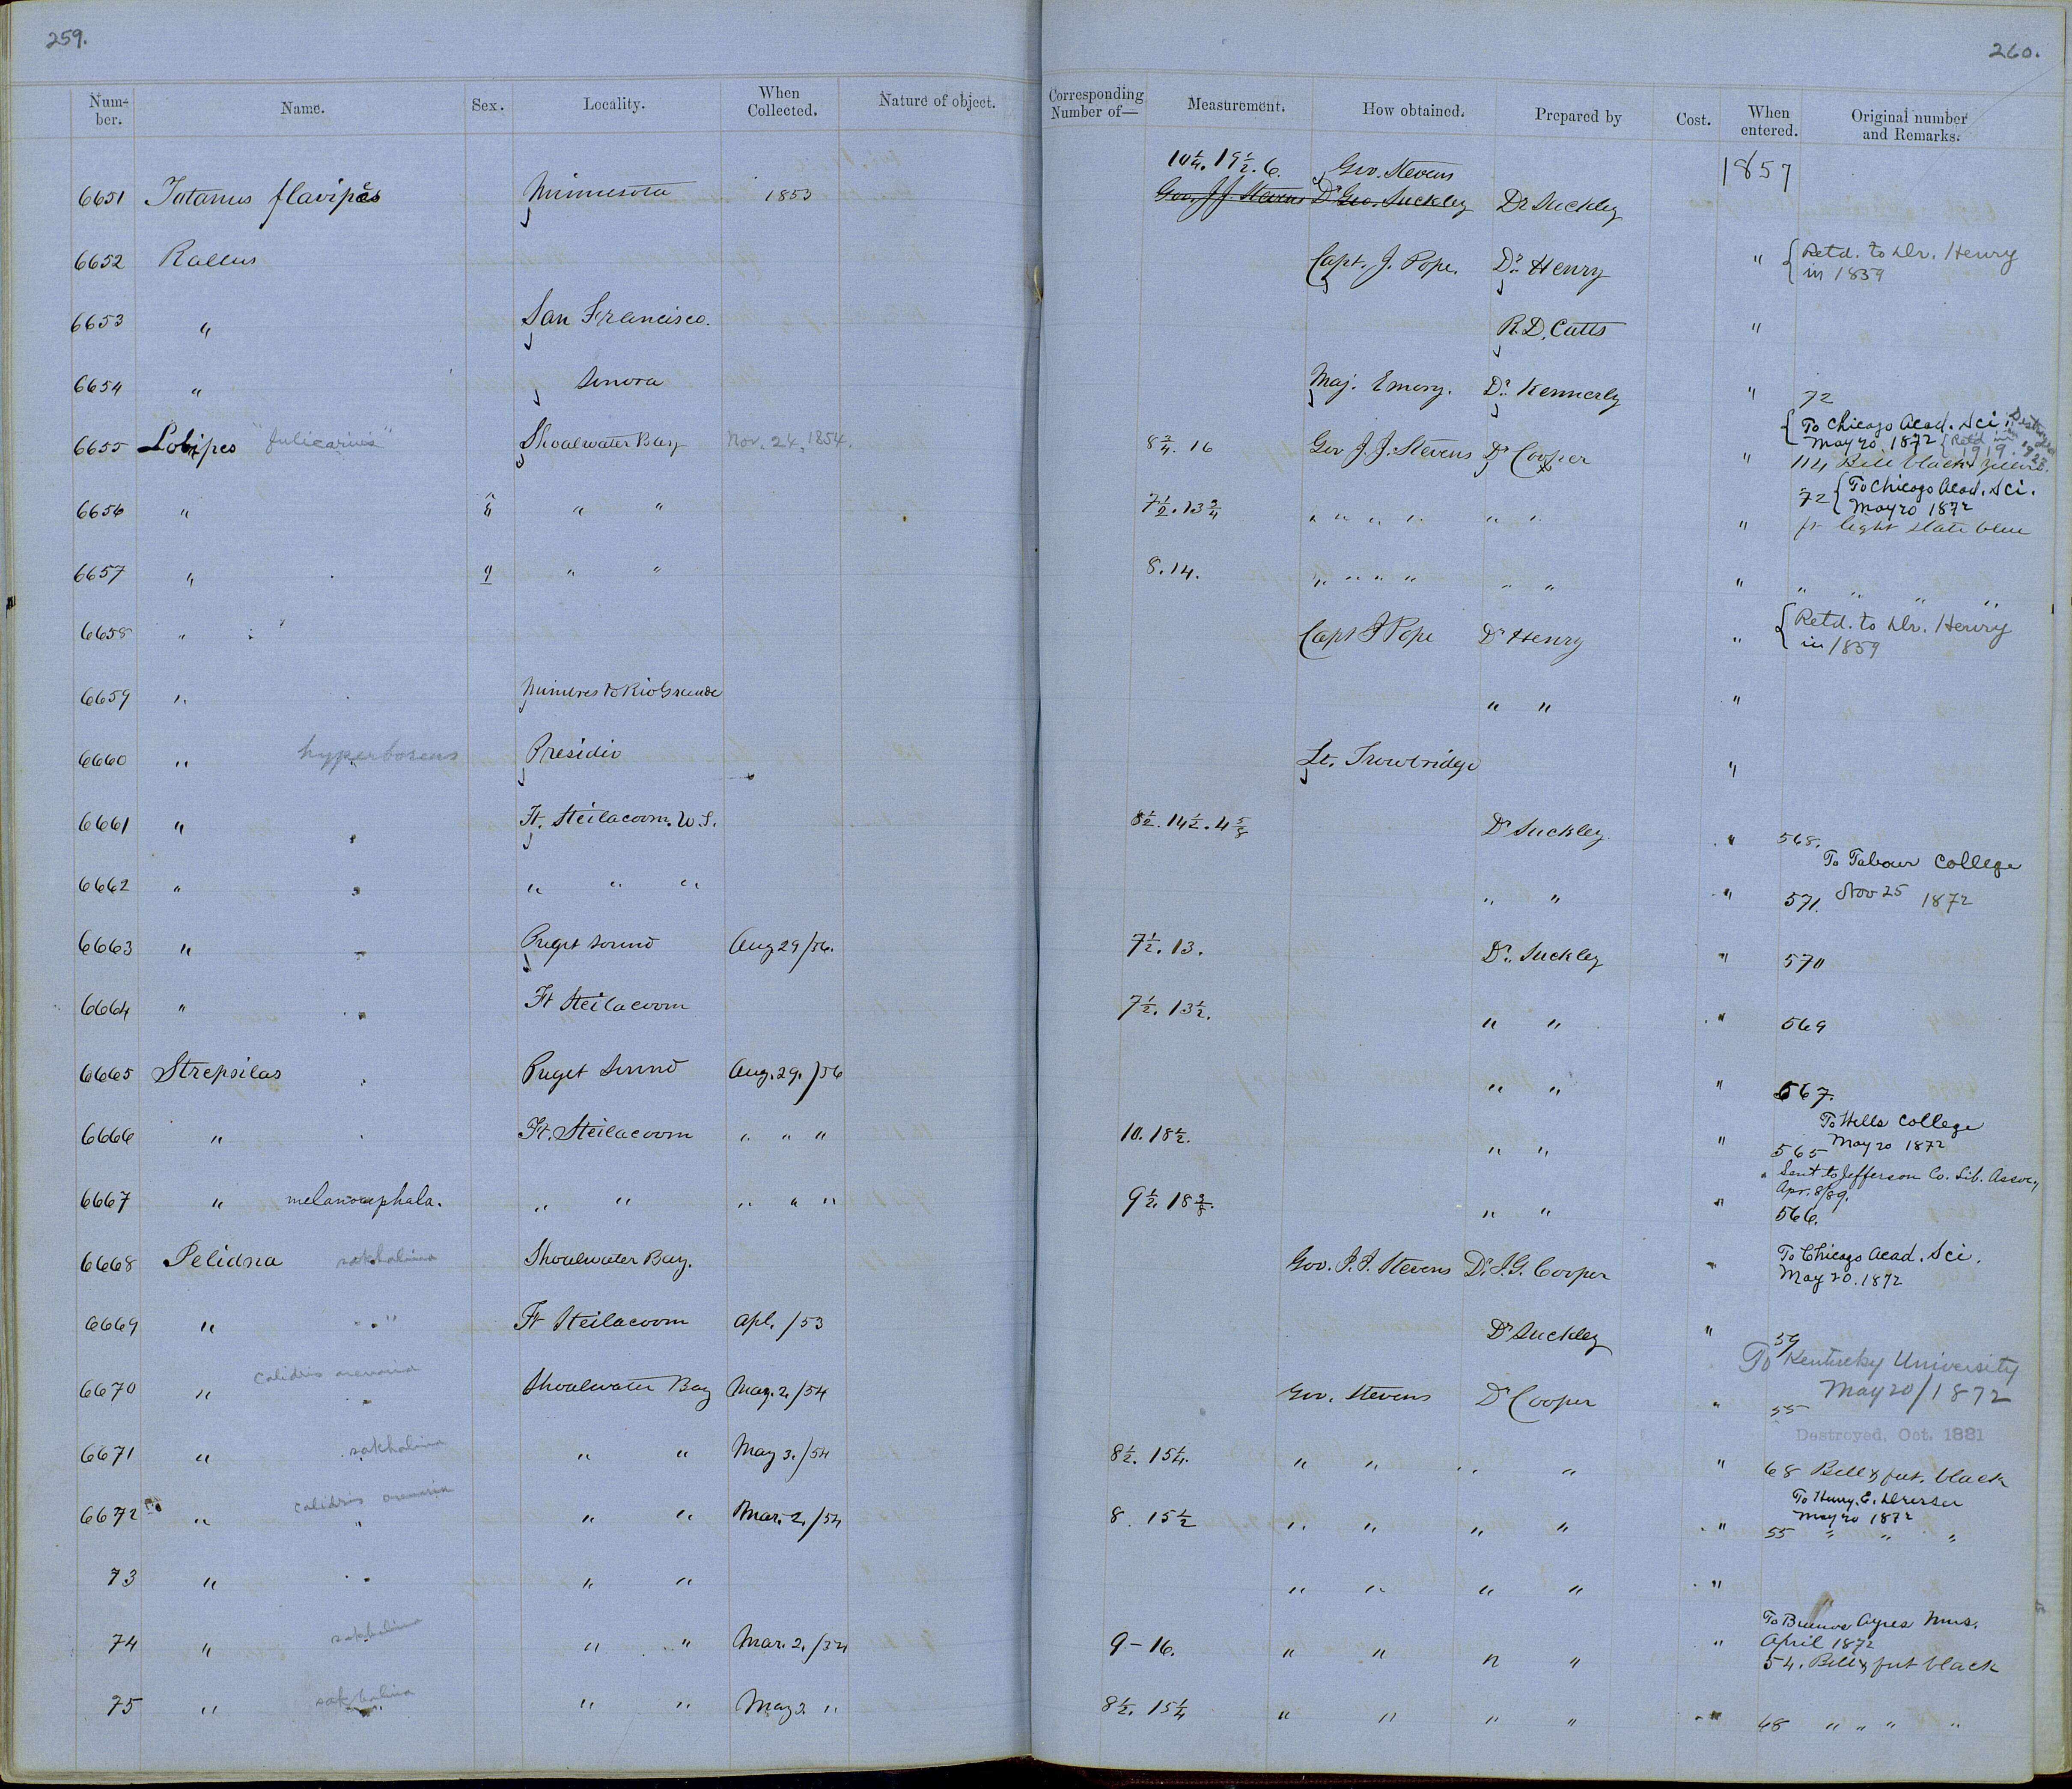 259.
260.
Num-ber. Name. Sex. Locality. When Collected. Nature of object. Corresponding Number of— Measurement. How obtained. Prepared by Cost. When entered. Original number and Remarks.
10 1/4. 19 1/2. 6. Gov. Stevens 1857
6651 Totanus flavipes Minnesota 1853 Gov. J. J. Stevens Dr Geo. Suckley Dr Suckley
6652 Rallus Capt. J. Pope. Dr. Henry " { Retd. to Dr. Henry
in 1859
6653 " San Francisco. R. D. Cutts "
6654 " Sonora Maj. Emory. Dr. Kennerly " 72
{ To Chicago Acad. Sci. Destroyed
May 20 1872 { Retd in 1919. in 1927.
6655 Lobipes "fulicarius" Shoalwater Bay Nov. 24, 1854. 8 3/4. 16 Gov J. J. Stevens Dr Cooper " 114 Bill black
{ To Chicago Acad. Sci.
72 May 20 1872
6656 " " " 7 1/2. 13 3/4 " " " " " " " ft light slate blue
6657 " ♀ " " 8. 14. " " " " " " " " " " "
6658 " " Capt J Pope Dr Henry " { Retd. to Dr. Henry
in 1859
6659 " Mimbres to Rio Grande " " "
6660 " hyperboreus Presidio Lt. Trowbridge "
6661 " " Ft. Steilacoom. W. T. 8 1/2. 14 1/2. 4 5/8 Dr Suckley " 568.
To Tabour College
6662 " " " " " " " " 571. Nov 25 1872
6663 " " Puget Sound Aug 29/56. 7 1/2. 13. Dr. Suckley " 570
6664 " " Ft Steilacoom 7 1/2. 13 1/2. " " " 569
6665 Strepsilas Puget Sound Aug. 29./56 " " " 567.
To Wells College
6666 " Ft. Steilacoom " " " 10. 18 1/2. " " " 565 May 20 1872
" Sent to Jefferson Co. Lib. Assoc.,
Apr. 8/89.
6667 " melanocephala. " " " " " 9 1/2. 18 3/8. " " " 566.
6668 Pelidna sakhalina Shoalwater Bay. Gov. J. J. Stevens Dr. J. G. Cooper " To Chicago Acad. Sci.
May 20. 1872
6669 " " Ft Steilacoom Apl. /53 Dr Suckley " 59
To Kentucky University
May 20/1872
6670 " calidris arenaria Shoalwater Bay May. 2,/54 Gov. Stevens Dr Cooper " 55
Destroyed, Oct. 1881
6671 " sakhalina " " May 3./54 8 1/2. 15 1/4. " " " " " 68 Bill & feet. black
To Henry. E. Dresser
May 20 1872
6672 " calidris arenaria " " Mar. 2,/54 8. 15 1/2 " " " " " 55 " " "
73 " " " " " " " " " "
To Buenos Ayres Mus.
April 1872
74 " sakhalina " " Mar. 2,/54 9 – 16. " " " " " 54. Bill & feet black
75 " sakhalina " " May 3. " 8 1/2. 15 1/4 " " " " " 68 " " " "